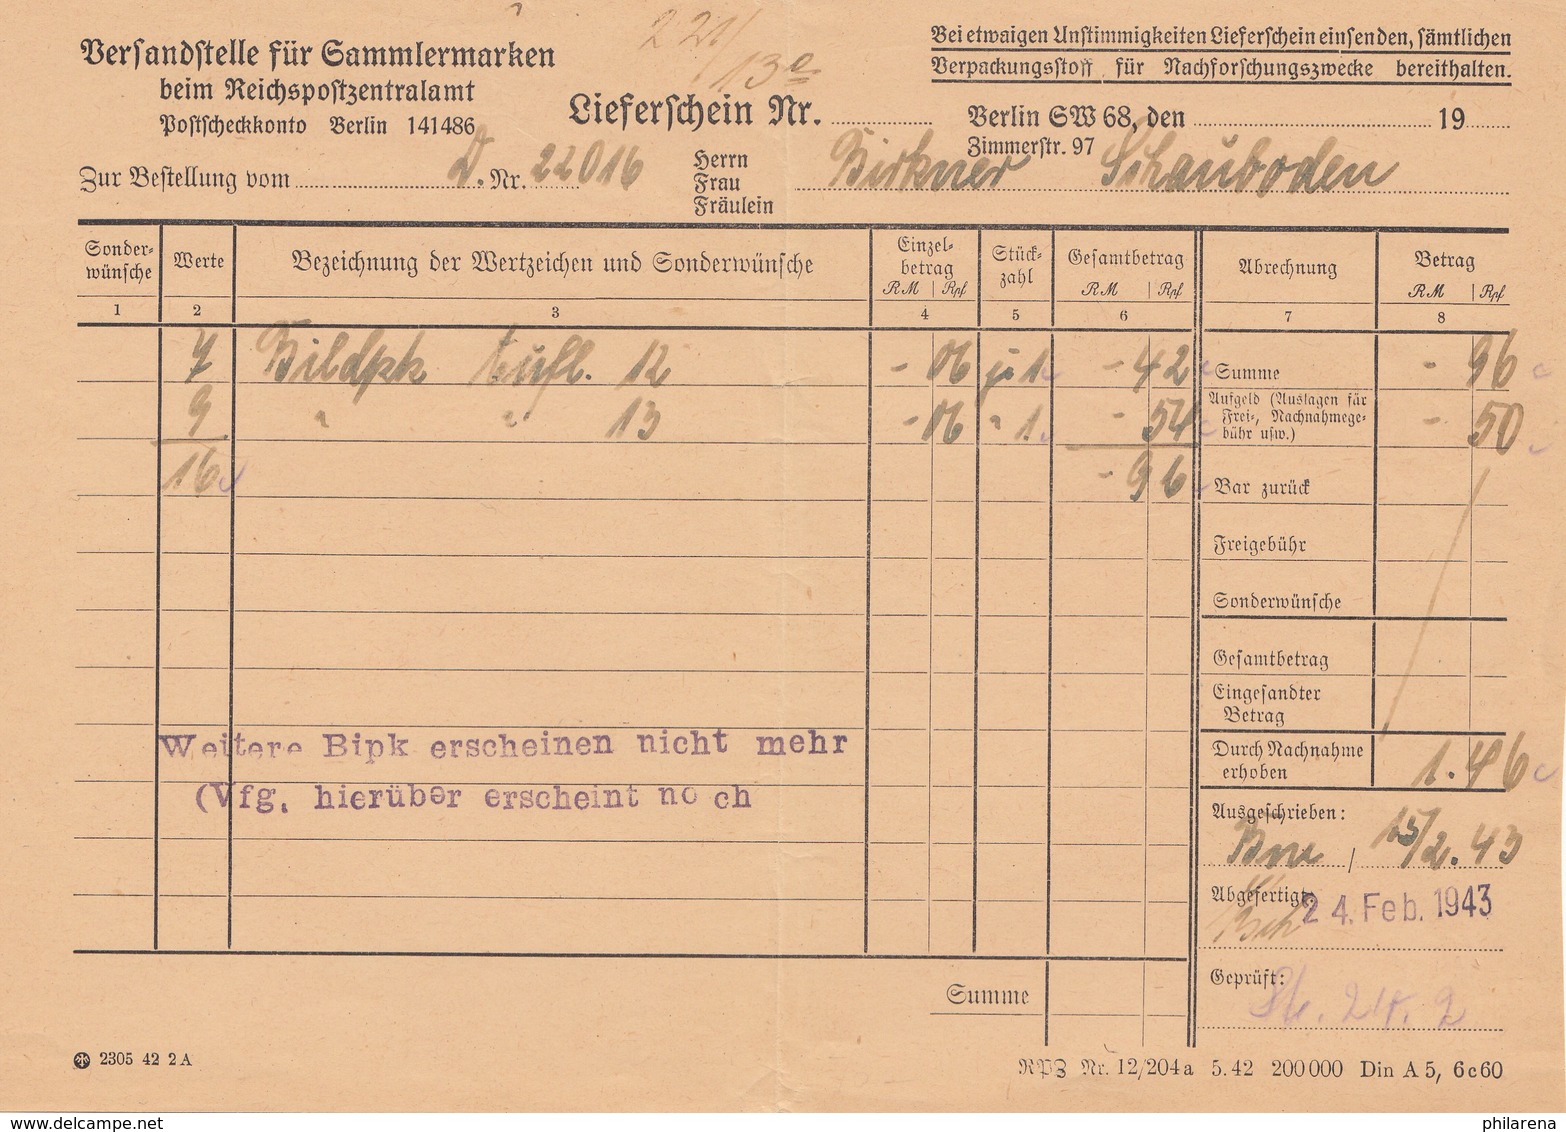 Versandstelle für Sammlermarken
beim Reichspostzentralamt
Postscheckkonto Berlin 141486
221/
13e
Lieferschein Nr.
Bei etwaigen Unstimmigkeiten Lieferschein einsenden, sämtlichen
Verpackungsstoff für Nachforschungszwecke bereithalten.
Berlin SW 68, den 19
Zimmerstr. 97
Zur Bestellung vom D. Nr. 22016
Herrn
Frau
Fräulein
Birkner Schauboden
Sonder-
wünsche
Werte
Bezeichnung der Wertzeichen und Sonderwünsche
Einzel-
betrag
RM | Rpf
Stück-
zahl
Gesamtbetrag
RM | Rpf
Abrechnung
Betrag
RM | Rpf
1 2 3 4 5 6 7 8
7 Bildpk Aufl. 12 - 06 je 1 - 42
9 " " 13 - 06 " 1 - 54
16 - 96
Summe - 96
Aufgeld (Auslagen für
Frei-, Nachnahmege-
bühr usw.) - 50
Bar zurück
Freigebühr
Sonderwünsche
Gesamtbetrag
Eingesandter
Betrag
Durch Nachnahme
erhoben 1.46
Weitere Bipk erscheinen nicht mehr
(Vfg. hierüber erscheint noch
Ausgeschrieben:
/ 15/2.43
Abgefertigt:
24. Feb. 1943
Geprüft:
24. 2
Summe
2305 42 2 A
RPZ Nr. 12/204a 5.42 200000 Din A 5, 6c60
www.delcampe.net
philarena